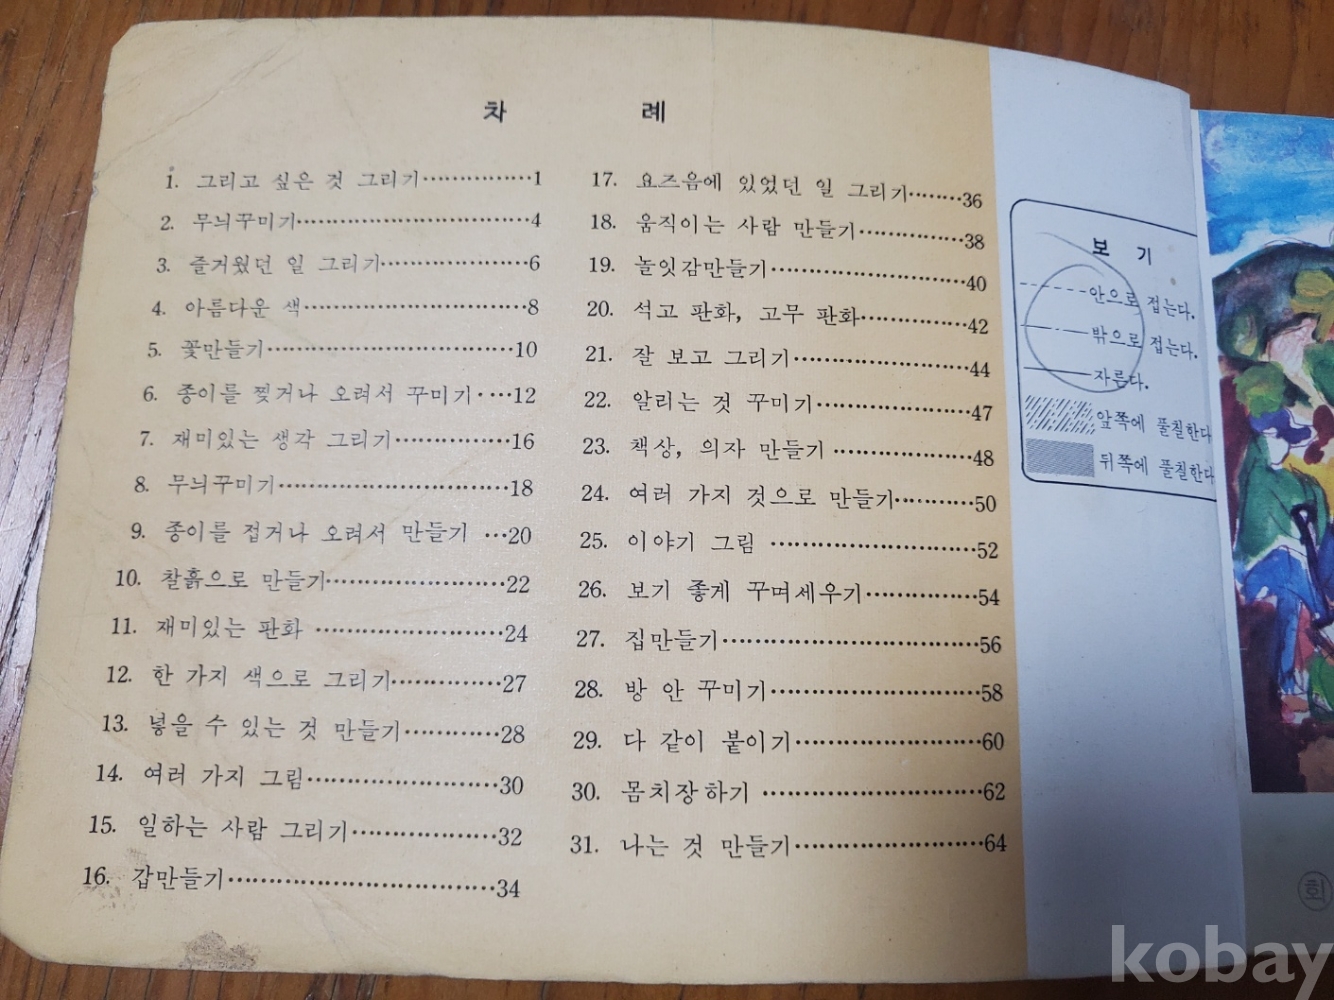 차 례
1. 그리고 싶은 것 그리기……………1
2. 무늬꾸미기……………………………4
3. 즐거웠던 일 그리기…………………6
4. 아름다운 색……………………………8
5. 꽃만들기………………………………10
6. 종이를 찢거나 오려서 꾸미기‥…12
7. 재미있는 생각 그리기……………16
8. 무늬꾸미기……………………………18
9. 종이를 접거나 오려서 만들기 …20
10. 찰흙으로 만들기……………………22
11. 재미있는 판화 ………………………24
12. 한 가지 색으로 그리기……………27
13. 넣을 수 있는 것 만들기…………28
14. 여러 가지 그림………………………30
15. 일하는 사람 그리기…………………32
16. 갑만들기………………………………34
17. 요즈음에 있었던 일 그리기………36
18. 움직이는 사람 만들기……………38
19. 놀잇감만들기…………………………40
20. 석고 판화, 고무 판화……………42
21. 잘 보고 그리기………………………44
22. 알리는 것 꾸미기……………………47
23. 책상, 의자 만들기 …………………48
24. 여러 가지 것으로 만들기…………50
25. 이야기 그림 …………………………52
26. 보기 좋게 꾸며세우기……………54
27. 집만들기………………………………56
28. 방 안 꾸미기…………………………58
29. 다 같이 붙이기………………………60
30. 몸치장하기 …………………………62
31. 나는 것 만들기………………………64
보 기
안으로 접는다.
밖으로 접는다.
자른다.
앞쪽에 풀칠한다
뒤쪽에 풀칠한다
회
kobay